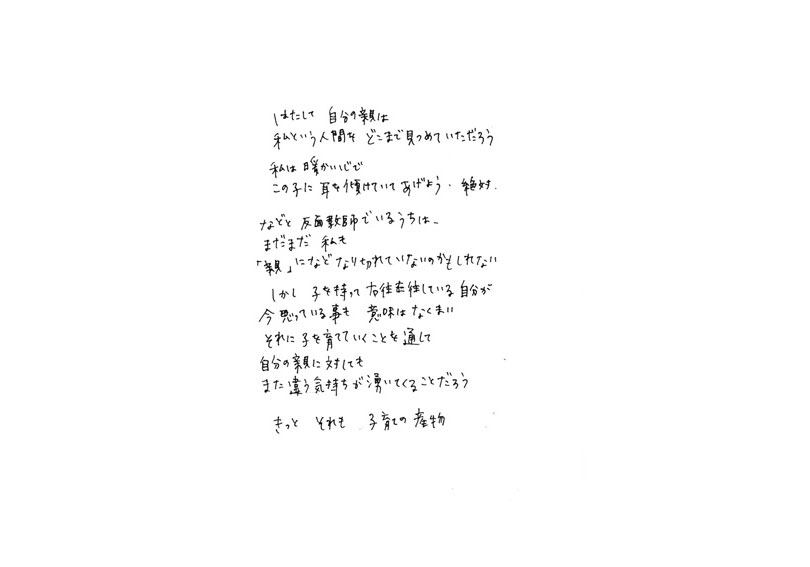 はたして 自分の親は
私という人間を どこまで見つめていただろう
私は暖かい心で
この子に 耳を傾けていてあげよう．絶対．
などと 反面教師でいるうちは、
まだまだ 私も
「親」になど なり切れていないのかもしれない
しかし 子を持って 右往左往している 自分が
今 思っている事も 意味はなくまい
それに 子を育てていくことを 通して
自分の親に 対しても
また違う気持ちが 湧いてくることだろう
きっと それも 子育ての 産物